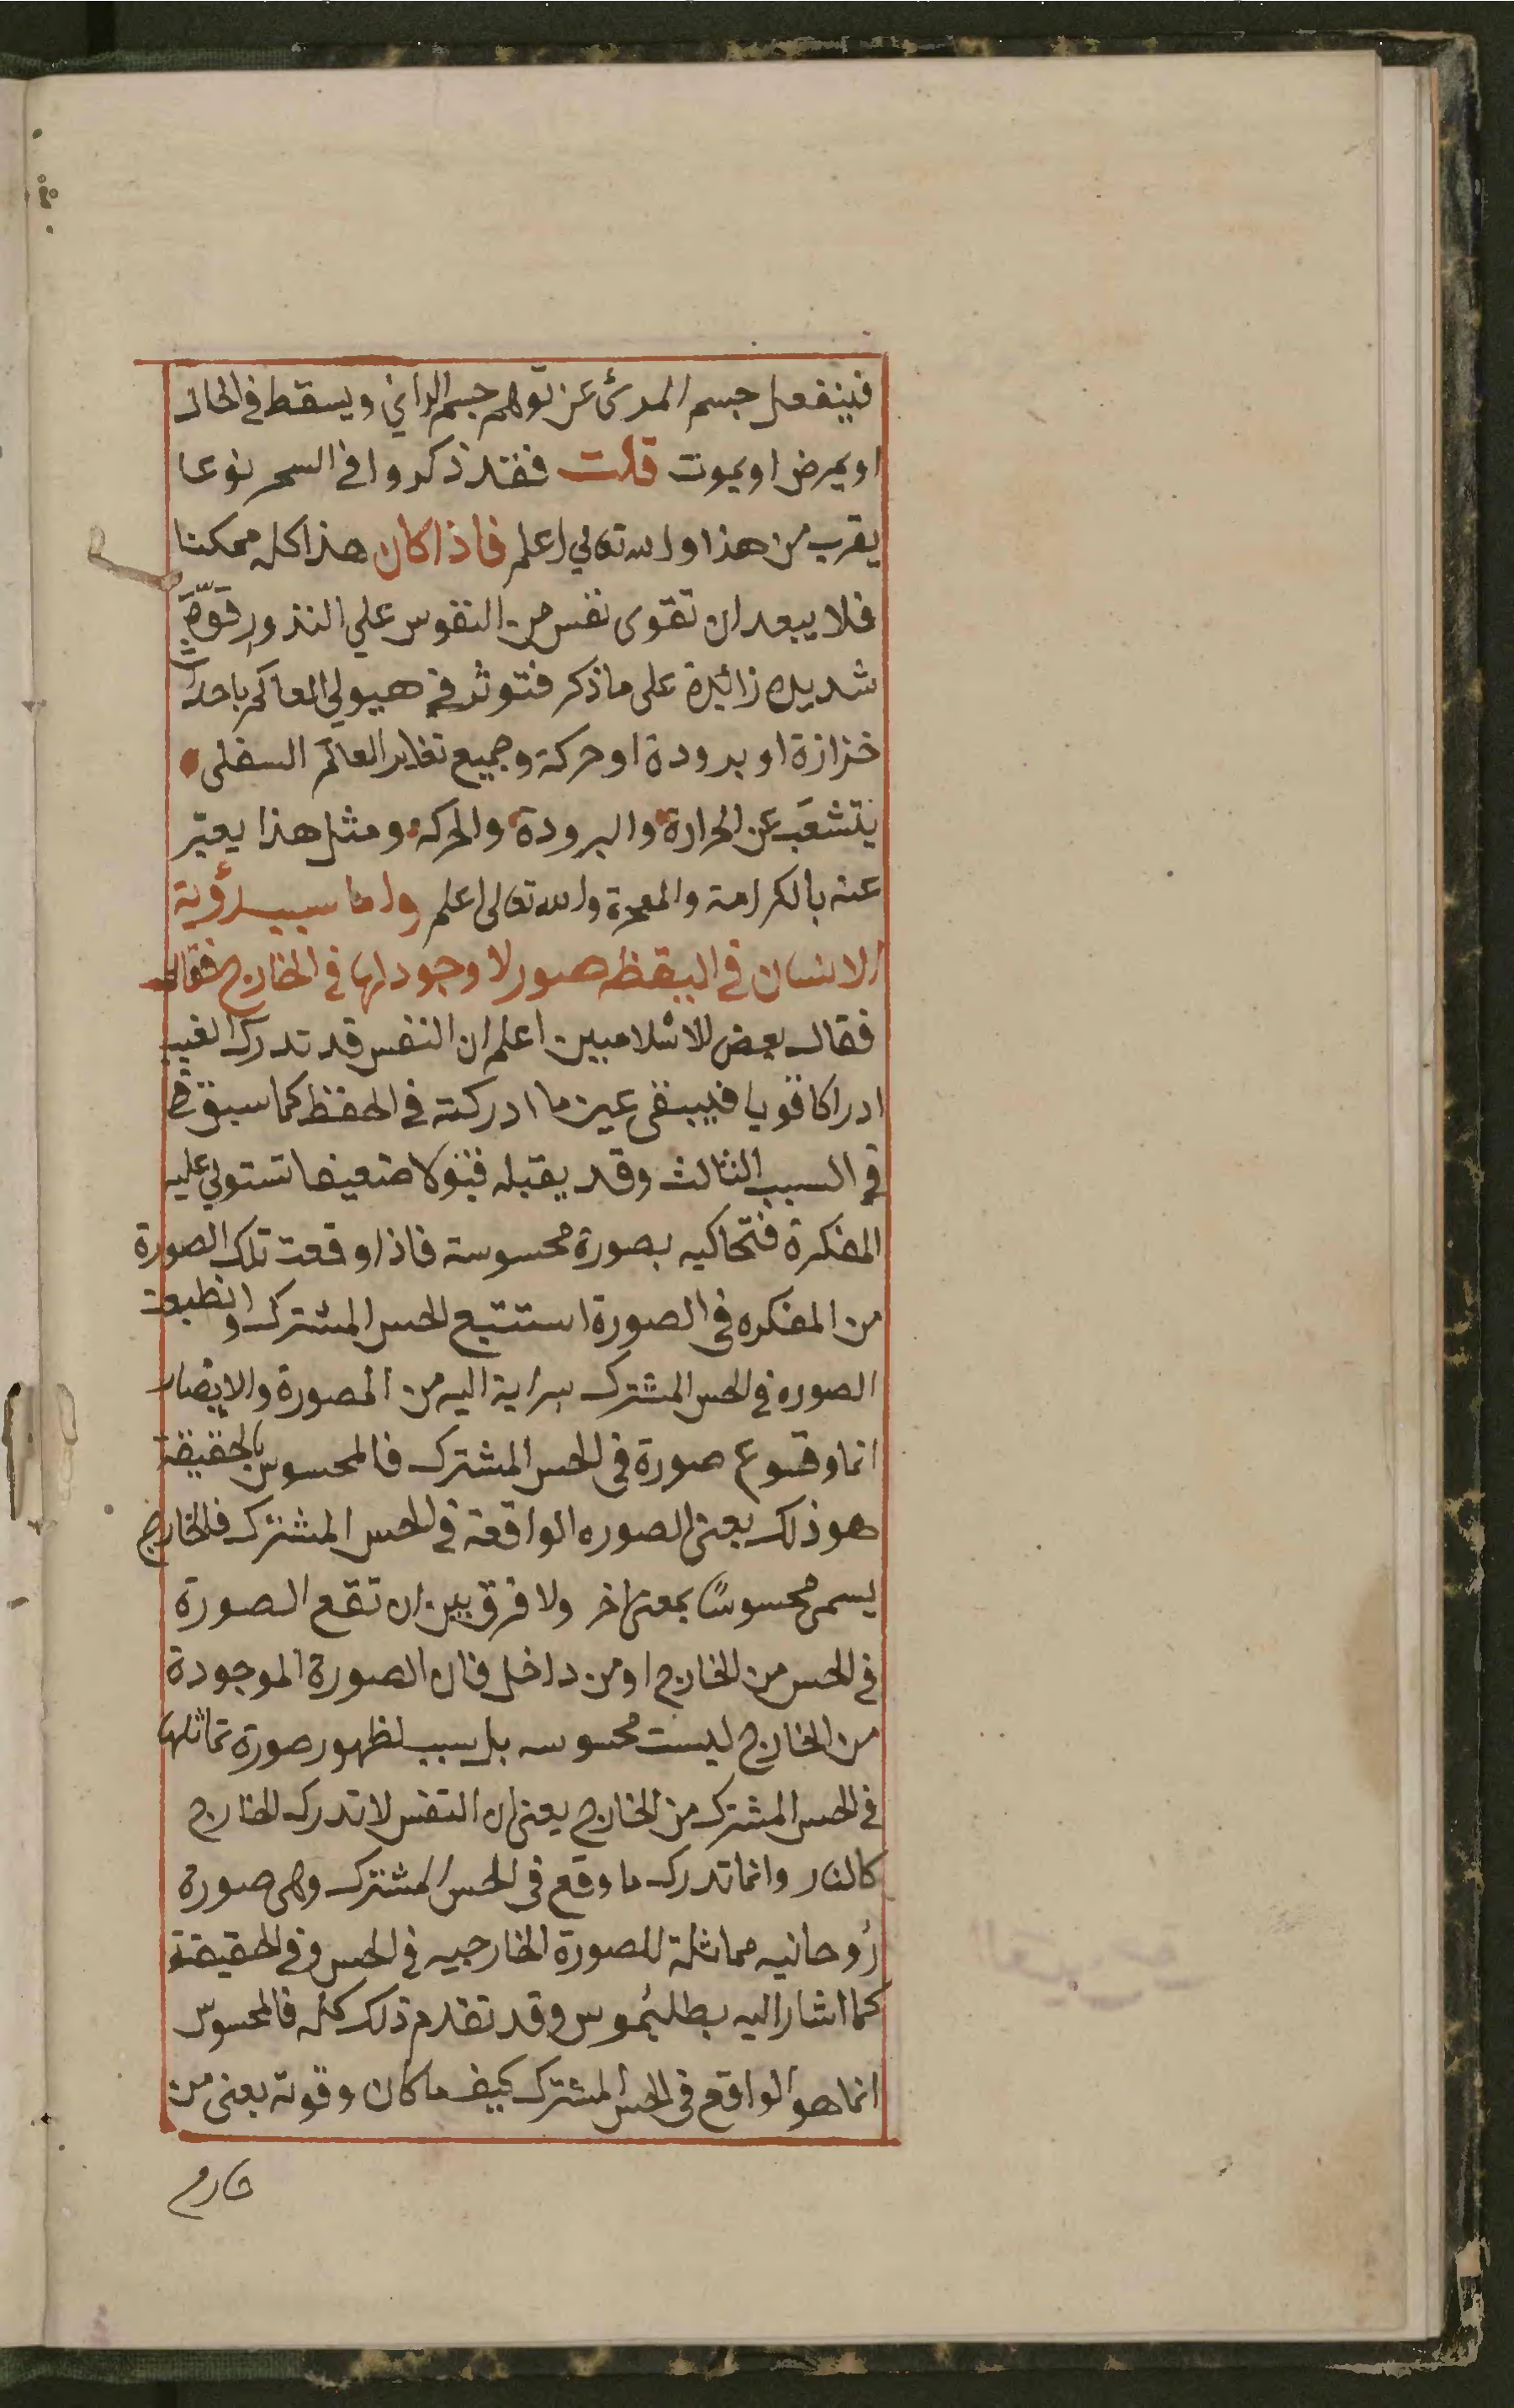 فينفعل جسم المرئى عن توهم جسم الرائي ويسقط في الحال
او يمرض او يموت قلت فقد ذكروا في السحر نوعا
يقرب من هذا والله تعالي اعلم فاذا كان هذا كله ممكنا
فلا يبعد ان تقوى نفس من النفوس علي النذور قوة
شديده زائدة على ما ذكر فتوثر في هيولي العالم باحداث
خزازة او برودة او حركة وجميع تغاير العالم السفلى
يتشعب عن الحرارة والبرودة والحركة ومثل هذا يعبّر
عنه بالكرامة والمعجزة والله تعالى اعلم واما سبب رؤية
الانسان في اليقظه صور لا وجود لها في الخارج فقال
فقال بعض الاسلاميين اعلم ان النفس قد تدرك الغيب
ادراكا قويا فيبقى عين ما ادركته في الحفظ كما سبق
في السبب الثالث وقد يقبله قبولا ضعيفا تستولي عليه
المفكرة فتحاكيه بصورة محسوسة فاذا وقعت تلك الصورة
من المفكره في الصورة استتبع الحس المشترك وانطبعت
الصوره في الحس المشترك سراية اليه من المصورة والابصار
انما وقوع صورة في الحس المشترك فالمحسوس بالحقيقة
هو ذلك يعنى الصوره الواقعة في الحس المشترك فالخارج
يسمى محسوسًا بمعنى اخر ولا فرق بين ان تقع الصورة
في الحس من الخارج او من داخل فان الصورة الموجودة
من الخارج ليست محسوسه بل سبب لظهور صورة تماثلها
في الحس المشترك من الخارج يعنى ان النفس لا تدرك الخارج
كالنار وانما تدرك ما وقع في الحس المشترك وهى صورة
روحانيه مماثلة للصورة الخارجيه في الحس وفي الحقيقة
كما اشار اليه بطليموس وقد تقدم ذلك كله فالمحسوس
انما هو الواقع في الحس المشترك كيف ما كان وقوته يعنى من